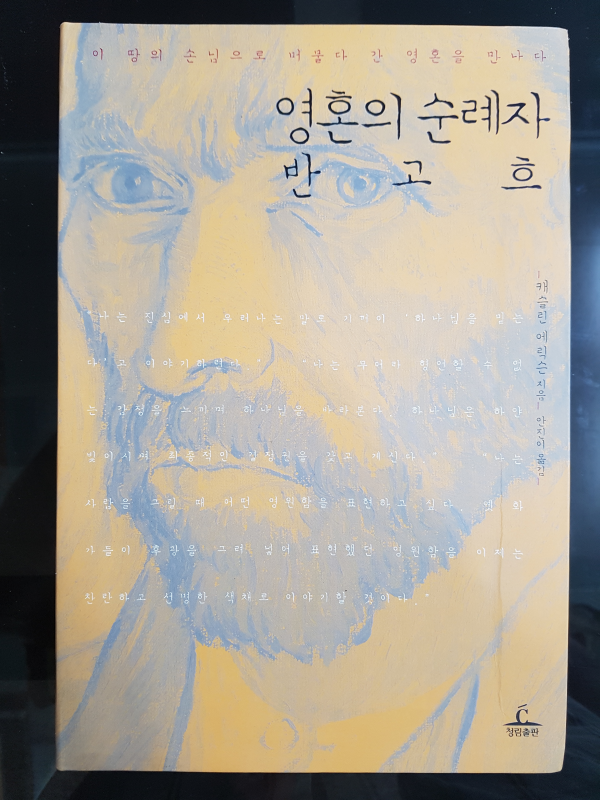 이 땅의 손님으로 머물다 간 영혼을 만나다
영혼의 순례자
반 고 흐
캐슬린 에릭슨 지음 - 안진이 옮김
"나는 진심에서 우러나는 말로 기꺼이 '하나님을 믿는
다'고 이야기하련다." "나는 무어라 형언할 수 없
는 감정을 느끼며 하나님을 바라본다. 하나님은 하얀
빛이시며 최종적인 결정권을 갖고 계신다." "나는
사람을 그릴 때 어떤 영원함을 표현하고 싶다. 옛 화
가들이 후광을 그려 넣어 표현했던 영원함을 이제는
찬란하고 선명한 색채로 이야기할 것이다."
Ć
청림출판